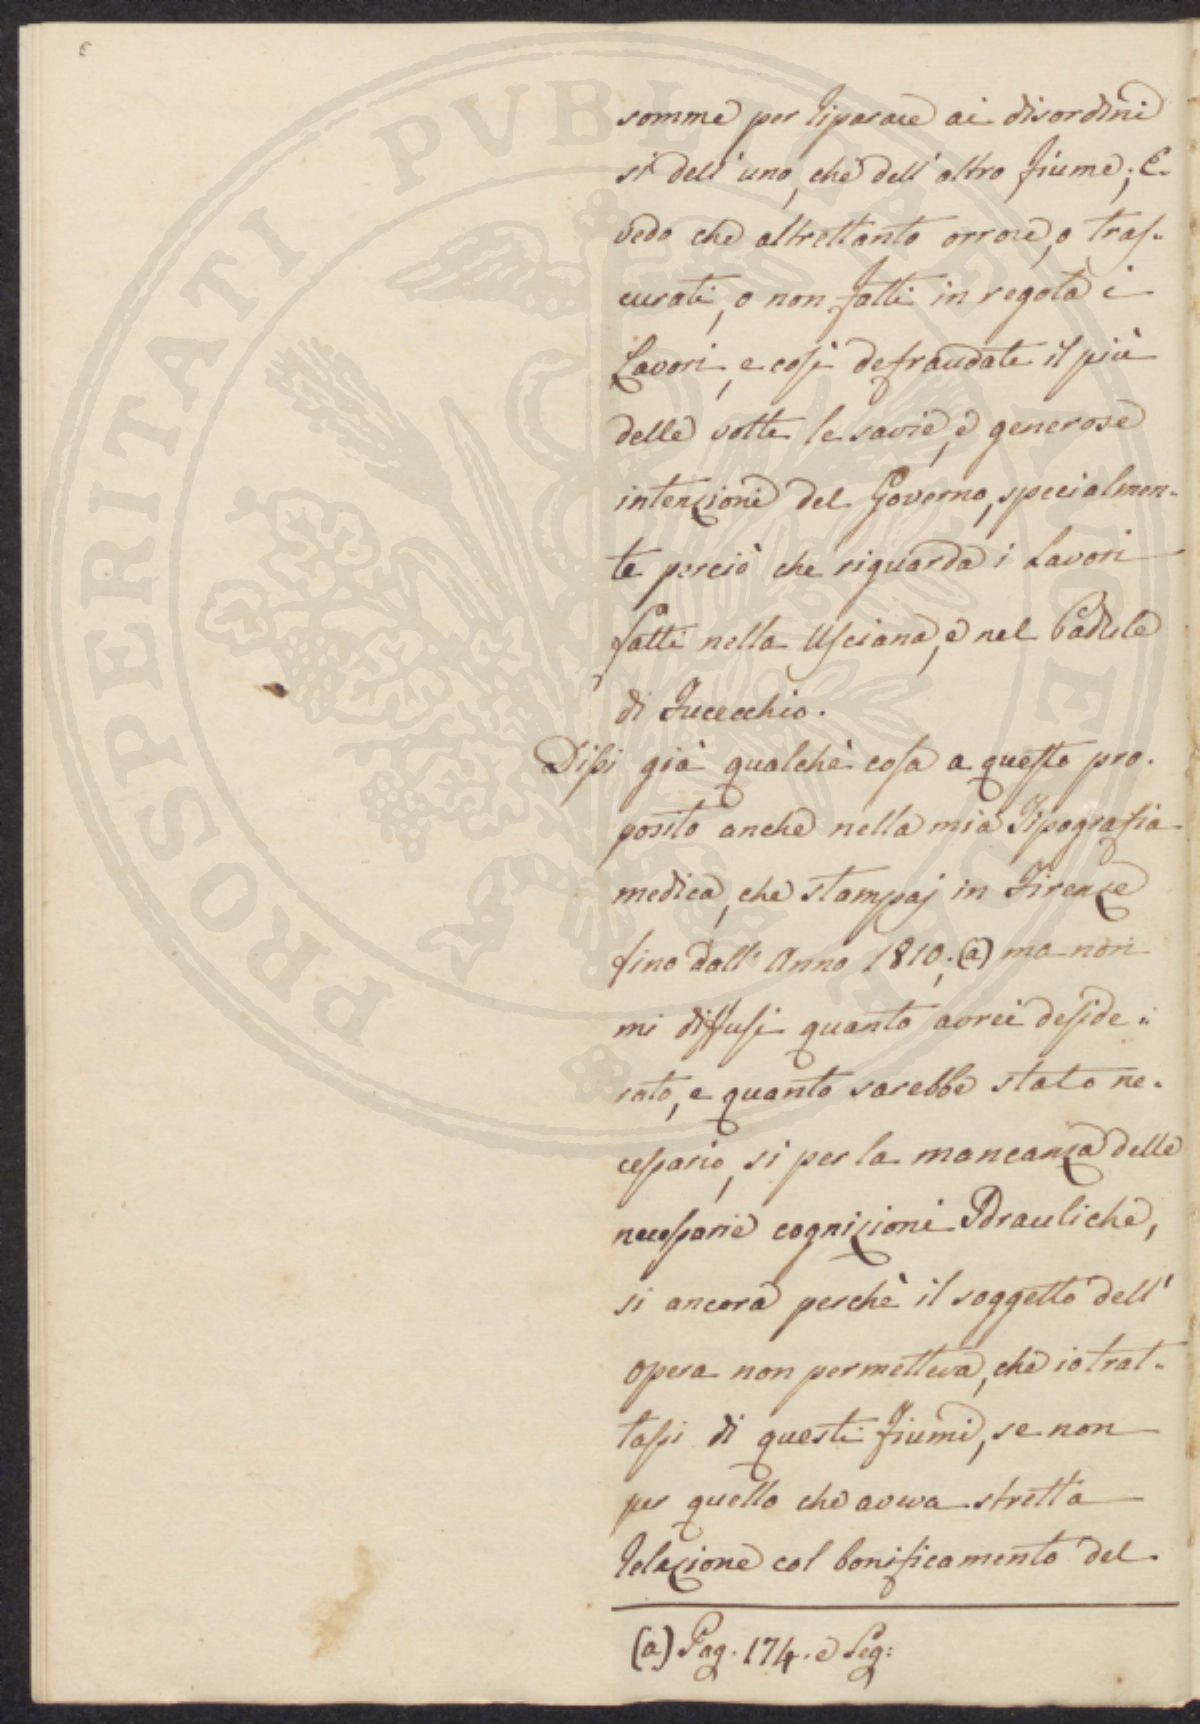 6
somme per riparare ai disordini
sì dell'uno, che dell'altro fiume; E.
vedo che altrettanto orrore, o tras-
curati, o non fatti in regola i
Lavori, e così defraudate il più
delle volte le savie, e generose
intenzioni del Governo, specialmen-
te perciò che riguarda i Lavori
fatti nella Usciana, e nel Padule
di Fucecchio.
Dissi già qualche cosa a questo pro-
posito anche nella mia Tipografia
medica, che stampaj in Firenze
fino dall'Anno 1810; (a) ma non
mi diffusi quanto avrei deside-
rato, e quanto sarebbe stato ne-
cessario, si per la mancanza delle
necessarie cognizioni Idrauliche,
si ancora perchè il soggetto dell'
opera non permetteva, che io trat-
tassi di questi Fiumi, se non
per quello che aveva stretta
Relazione col bonificamento del
(a) Pag. 174. e Seg:
PROSPERITATI PVBLICAE AVGENDAE